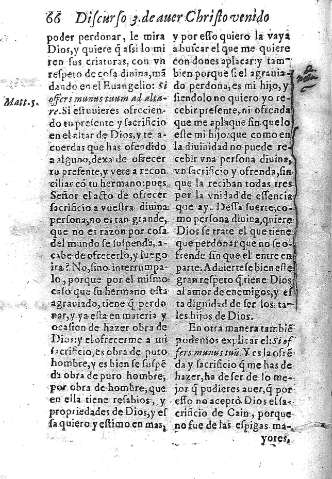 66 Discurso 3. de auer Christo venido
poder perdonar, le mira
Dios, y quiere q̃ assi lo mi
ren sus criaturas, con vn
respeto de cosa diuina, mã
dando en el Euangelio: Si
offers munus tuum ad alta-
re. Si estuuieres ofrecien-
do tu presente y sacrificio
en el altar de Dios, y te a-
cuerdas que has ofendido
a alguno, dexa de ofrecer
tu presente, y vete a recon
ciliar cõ tu hermano: pues
Señor el acto de ofrecer
sacrificio a vuestra diuina
persona, no es tan grande,
que no es razon por cosa
del mundo se suspenda, a-
cabe de ofrecerlo, y luego
ira? No, sino interrumpa-
lo, porque por el mismo
caso que su hermano esta
agrauiado, tiene q̃ perdo
nar, y ya esta en materia y
ocasion de hazer obra de
Dios: y el ofrecerme a mi
sacrificio, es obra de puro
hombre, y es bien se suspẽ
da obra de puro hombre,
por obra de hombre, que
en ella tiene resabios, y
propriedades de Dios, y es
sa quiero y estimo en mas,
Matt. 5.
y por esso quiero la vaya
a buscar el que me quiere
con dones aplacar: y tam
bien porque si el agrauia-
do perdona, es mi hijo, y
siendolo no quiero yo re-
cebir presente, ni ofrenda
que me aplaque sin que lo
este mi hijo: que como en
la diuinidad no puede re-
cebir vna persona diuina,
vn sacrificio y ofrenda, sin
que la reciban todas tres
por la vnidad de essencia
que ay. Dessa suerte, co-
mo persona diuina, quiere
Dios se trate el que tiene
que perdonar que no se o-
frende sin que el entre en
parte. Aduiertese bien este
gran respeto q̃ tiene Dios
al amor de enemigos, y es
ta dignidad de ser los ta-
les hijos de Dios.
En otra manera tambiẽ
podemos explicar el: Si of
fers munus tuũ. Y es la ofrẽ
da y sacrificio q̃ me has de
hazer, ha de ser de lo me-
jor q̃ pudieres auer, q̃ por
esso no aceptò Dios el sa-
crificio de Cain, porque
no fue de las espigas ma-
yores,